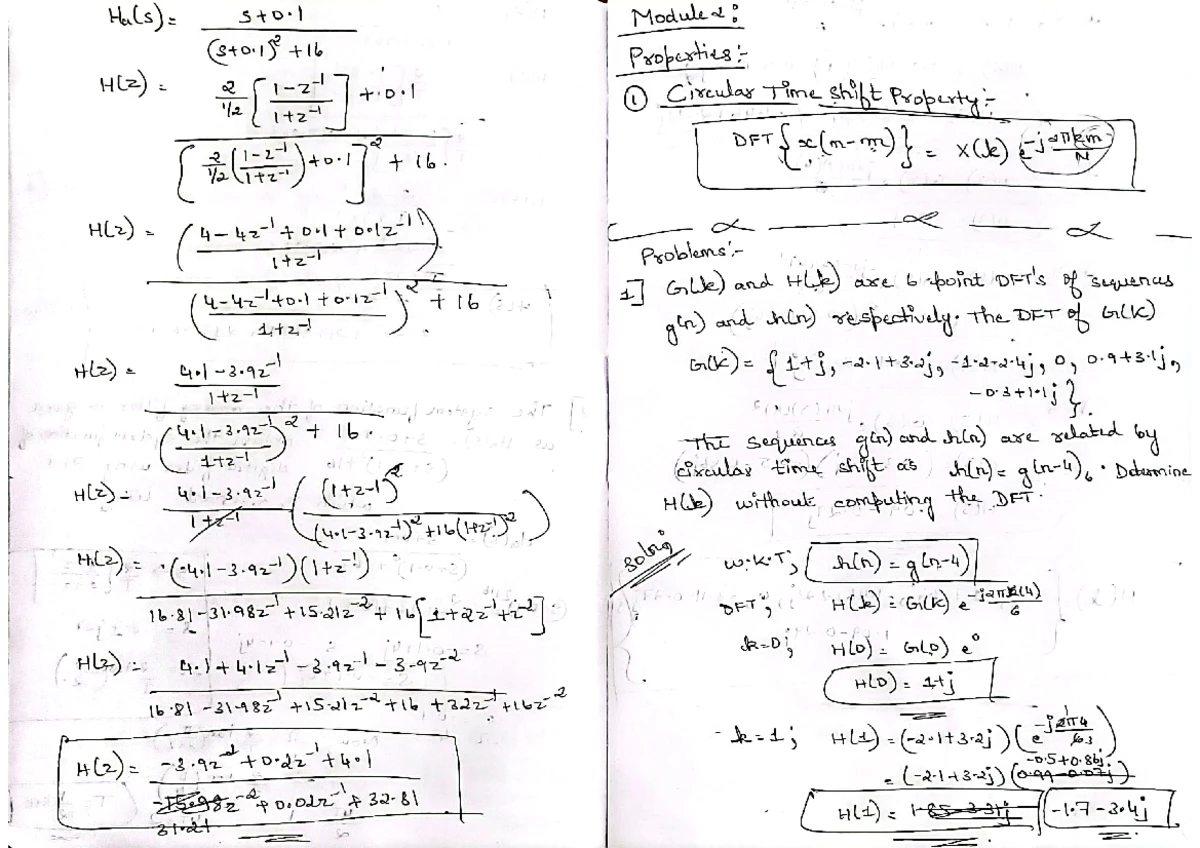 Ha(s) = s+0.1 / (s+0.1)² + 16
H(z) = 2/1/2 [1-z⁻¹ / 1+z⁻¹] + 0.1 / [2/1/2 (1-z⁻¹ / 1+z⁻¹) + 0.1]² + 16.
H(z) = (4-4z⁻¹+0.1+0.1z⁻¹ / 1+z⁻¹) / (4-4z⁻¹+0.1+0.1z⁻¹ / 1+z⁻¹)² + 16
H(z) = 4.1-3.9z⁻¹ / 1+z⁻¹ / (4.1-3.9z⁻¹ / 1+z⁻¹)² + 16.
H(z) = 4.1-3.9z⁻¹ / 1+z⁻¹ ((1+z-1)² / (4.1-3.9z⁻¹)²+16(1+z⁻¹)²)
H(z) = (4.1-3.9z⁻¹)(1+z⁻¹) / 16.81-31.98z⁻¹+15.21z⁻²+16[1+2z⁻¹+z⁻²]
H(z) = 4.1+4.1z⁻¹-3.9z⁻¹-3.9z⁻² / 16.81-31.98z⁻¹+15.21z⁻²+16+32z⁻¹+16z⁻²
H(z) = -3.9z⁻²+0.2z⁻¹+4.1 / 31.21 z⁻²+0.02z⁻¹+32.81
Module 2:
Properties:-
① Circular Time Shift Property:-
DFT{x(n-m)} = X(k) e^-j2πkm/N
Problems:-
1] G(k) and H(k) are 6-point DFT's of sequences
g(n) and h(n) respectively. The DFT of G(k)
G(k) = {1+j, -2.1+3.2j, -1.2-2.4j, 0, 0.9+3.1j,
-0.3+1.1j}.
The sequences g(n) and h(n) are related by
circular time shift as h(n) = g(n-4)₆. Determine
H(k) without computing the DFT.
Soln:
w.k.T; h(n) = g(n-4)
DFT; H(k) = G(k) e^-j2πk(4)/6
k=0; H(0) = G(0) e⁰
H(0) = 1+j
k=1; H(1) = (-2.1+3.2j)(e^-j2π4/63)
-0.5+0.86j
= (-2.1+3.2j)(0.99-0.07j)
H(1) = -1.7-3.4j